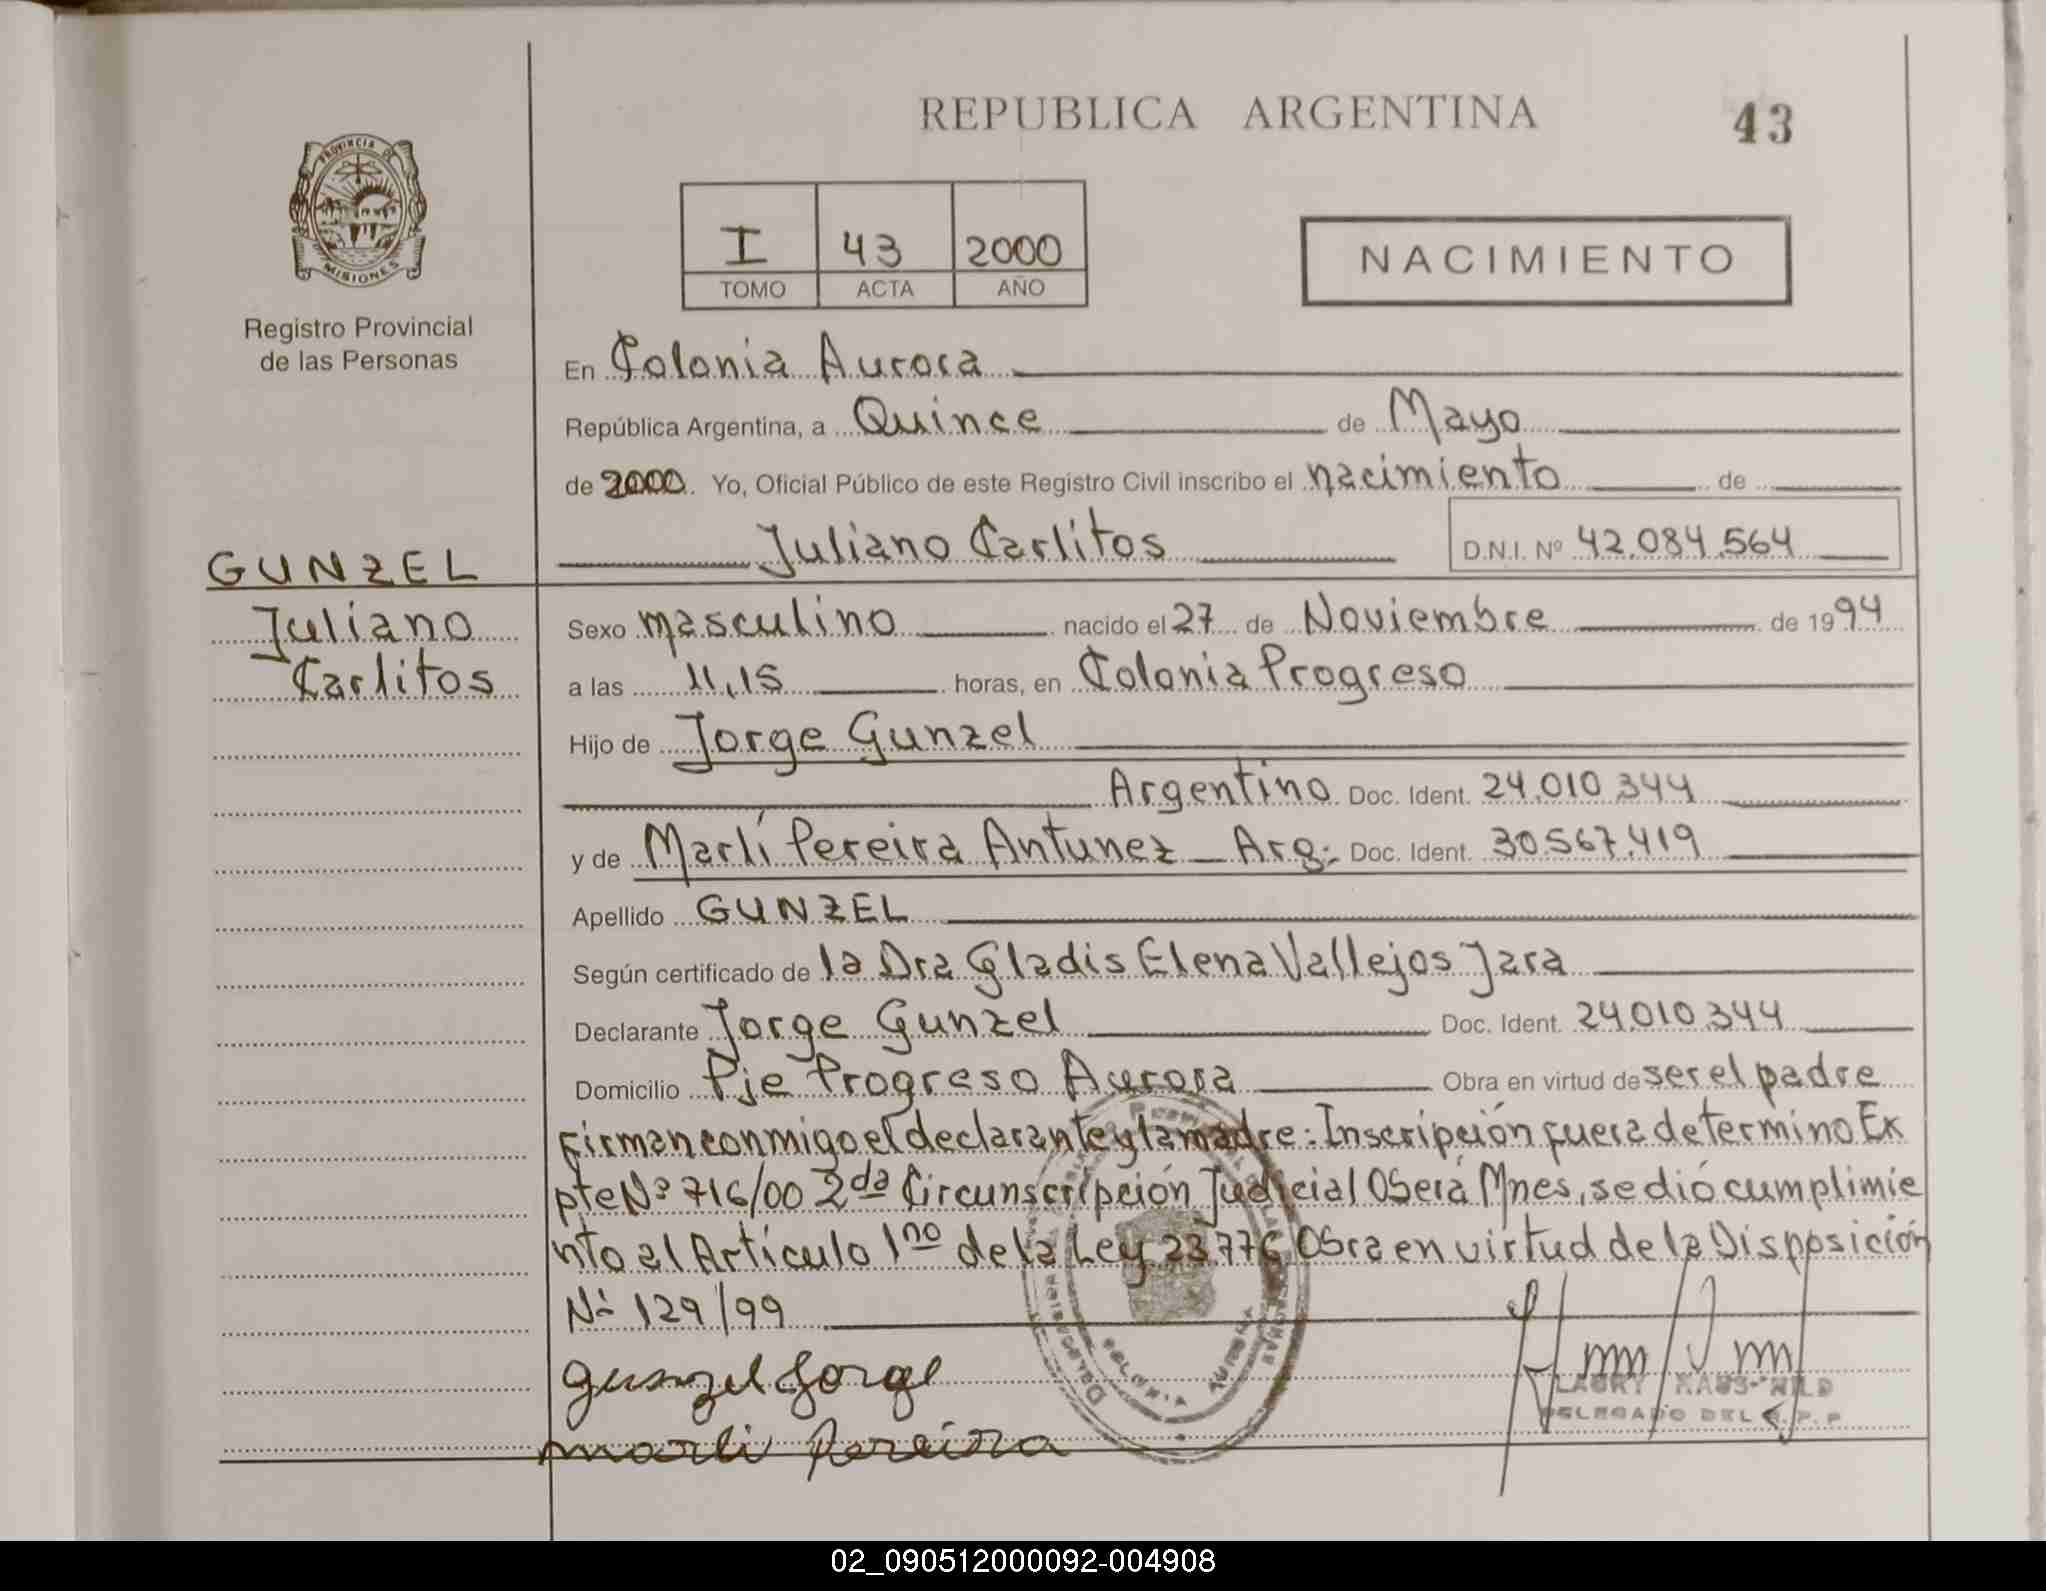 REPUBLICA ARGENTINA
43
PROVINCIA DE
MISIONES
Registro Provincial
de las Personas
I 43 2000
TOMO ACTA AÑO
NACIMIENTO
En Colonia Aurora
República Argentina, a Quince de Mayo
de 2000 Yo, Oficial Público de este Registro Civil inscribo el nacimiento de
Juliano Carlitos D.N.I. Nº 42.084.564
GUNZEL
Juliano
Carlitos
Sexo masculino nacido el 27 de Noviembre de 1994
a las 11,15 horas, en Colonia Progreso
Hijo de Jorge Gunzel
Argentino Doc. Ident. 24.010.344
y de Marlí Pereira Antunez - Arg: Doc. Ident. 30.567.419
Apellido GUNZEL
Según certificado de la Dra Gladis Elena Vallejos Jara
Declarante Jorge Gunzel Doc. Ident. 24.010.344
Domicilio Pje Progreso Aurora Obra en virtud de ser el padre
Firman conmigo el declarante y la madre: Inscripción fuera de termino Ex
pte Nº 716/00 2da Circunscripción Judicial Oberá Mnes, se dió cumplimie
nto al Artículo 1no de la Ley 23.776 Obra en virtud de la Disposición
Nº 129/99
gunzel Jorge
marli Pereira
COLONIA AURORA
DELEGADO DEL R.P.P
02_090512000092-004908